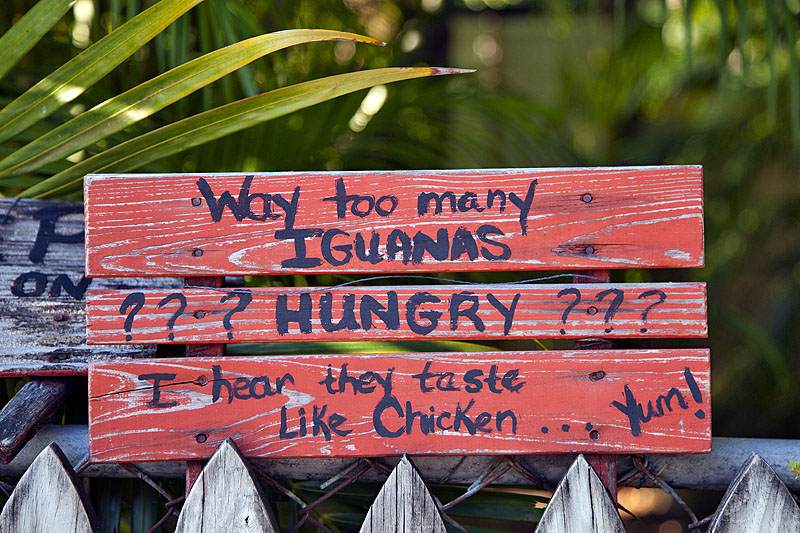 Way too many
IGUANAS
??? HUNGRY ???
I hear they taste
Like Chicken ... Yum!
P
ON